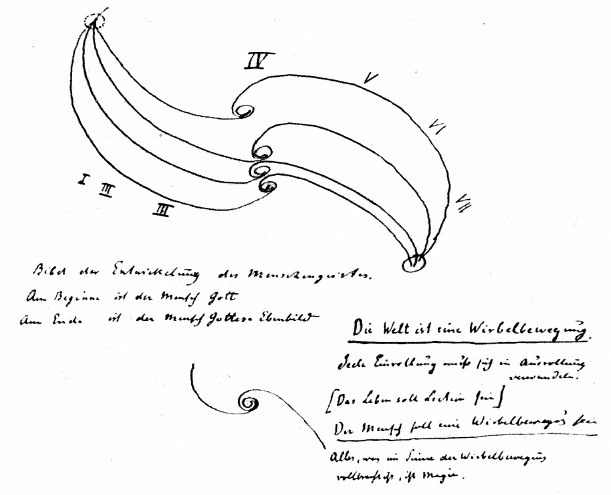 IV
V
VI
VII
I III
III
Bibel der Entwickelung des Menschengeistes.
Am Beginne ist der Mensch Gott
Am Ende ist der Mensch Gottes Ebenbild
Die Welt ist eine Wirbelbewegung.
Jede Einrollung muß sich in Ausrollung
verwandeln.
[Das Leben soll sein]
Der Mensch soll eine Wirbelbewegg sein
Alles, was im Sinne der Wirbelbewegung
vollbracht ist, ist Magie.